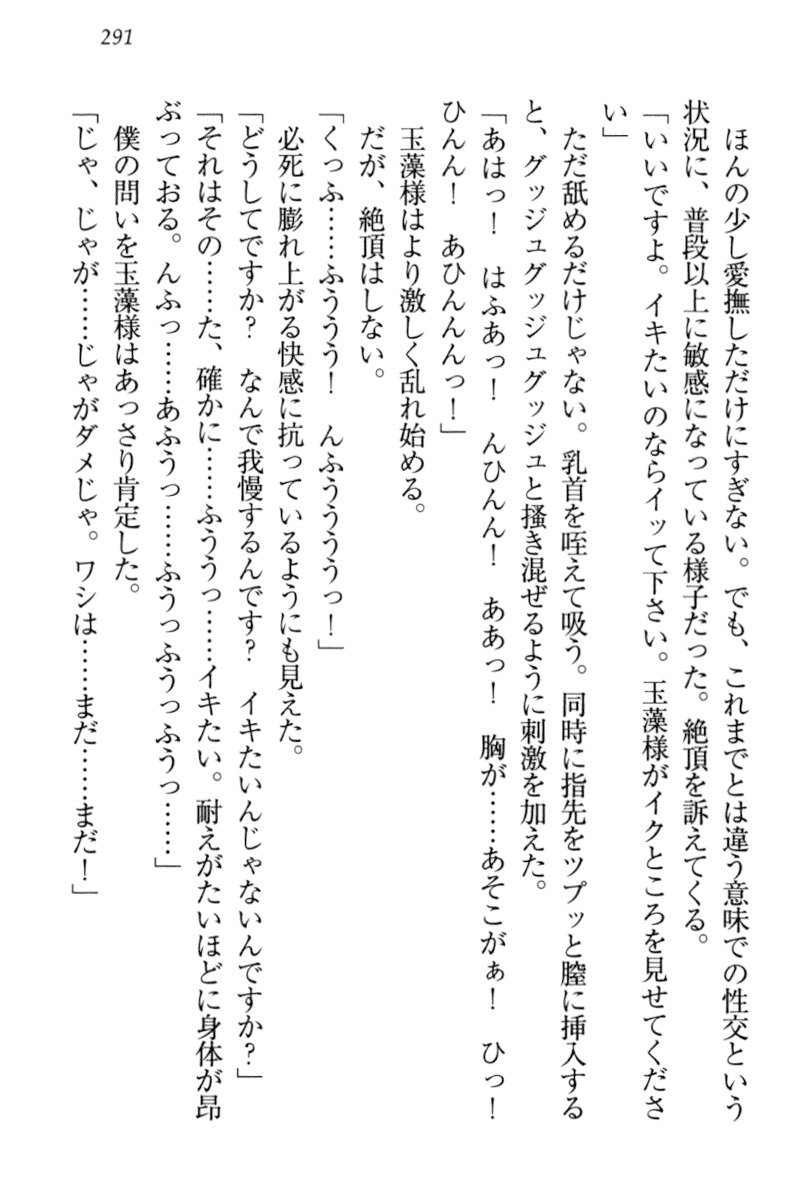 291
ほんの少し愛撫しただけにすぎない。でも、これまでとは違う意味での性交という
状況に、普段以上に敏感になっている様子だった。絶頂を訴えてくる。
「いいですよ。イキたいのならイッて下さい。玉藻様がイクところを見せてくださ
い」
ただ舐めるだけじゃない。乳首を咥えて吸う。同時に指先をツプッと膣に挿入する
と、グッジュグッジュグッジュと掻き混ぜるように刺激を加えた。
「あはっ！　はふあっ！　んひんん！　ああっ！　胸が……あそこがぁ！　ひっ！
ひんん！　あひんんんっ！」
玉藻様はより激しく乱れ始める。
だが、絶頂はしない。
「くっふ……ふううう！　んふうううっ！」
必死に膨れ上がる快感に抗っているようにも見えた。
「どうしてですか？　なんで我慢するんです？　イキたいんじゃないんですか？」
「それはその……た、確かに……ふううっ……イキたい。耐えがたいほどに身体が昂
ぶっておる。んふっ……あふうっ……ふうっふうっふうっ……」
僕の問いを玉藻様はあっさり肯定した。
「じゃ、じゃが……じゃがダメじゃ。ワシは……まだ……まだ！」